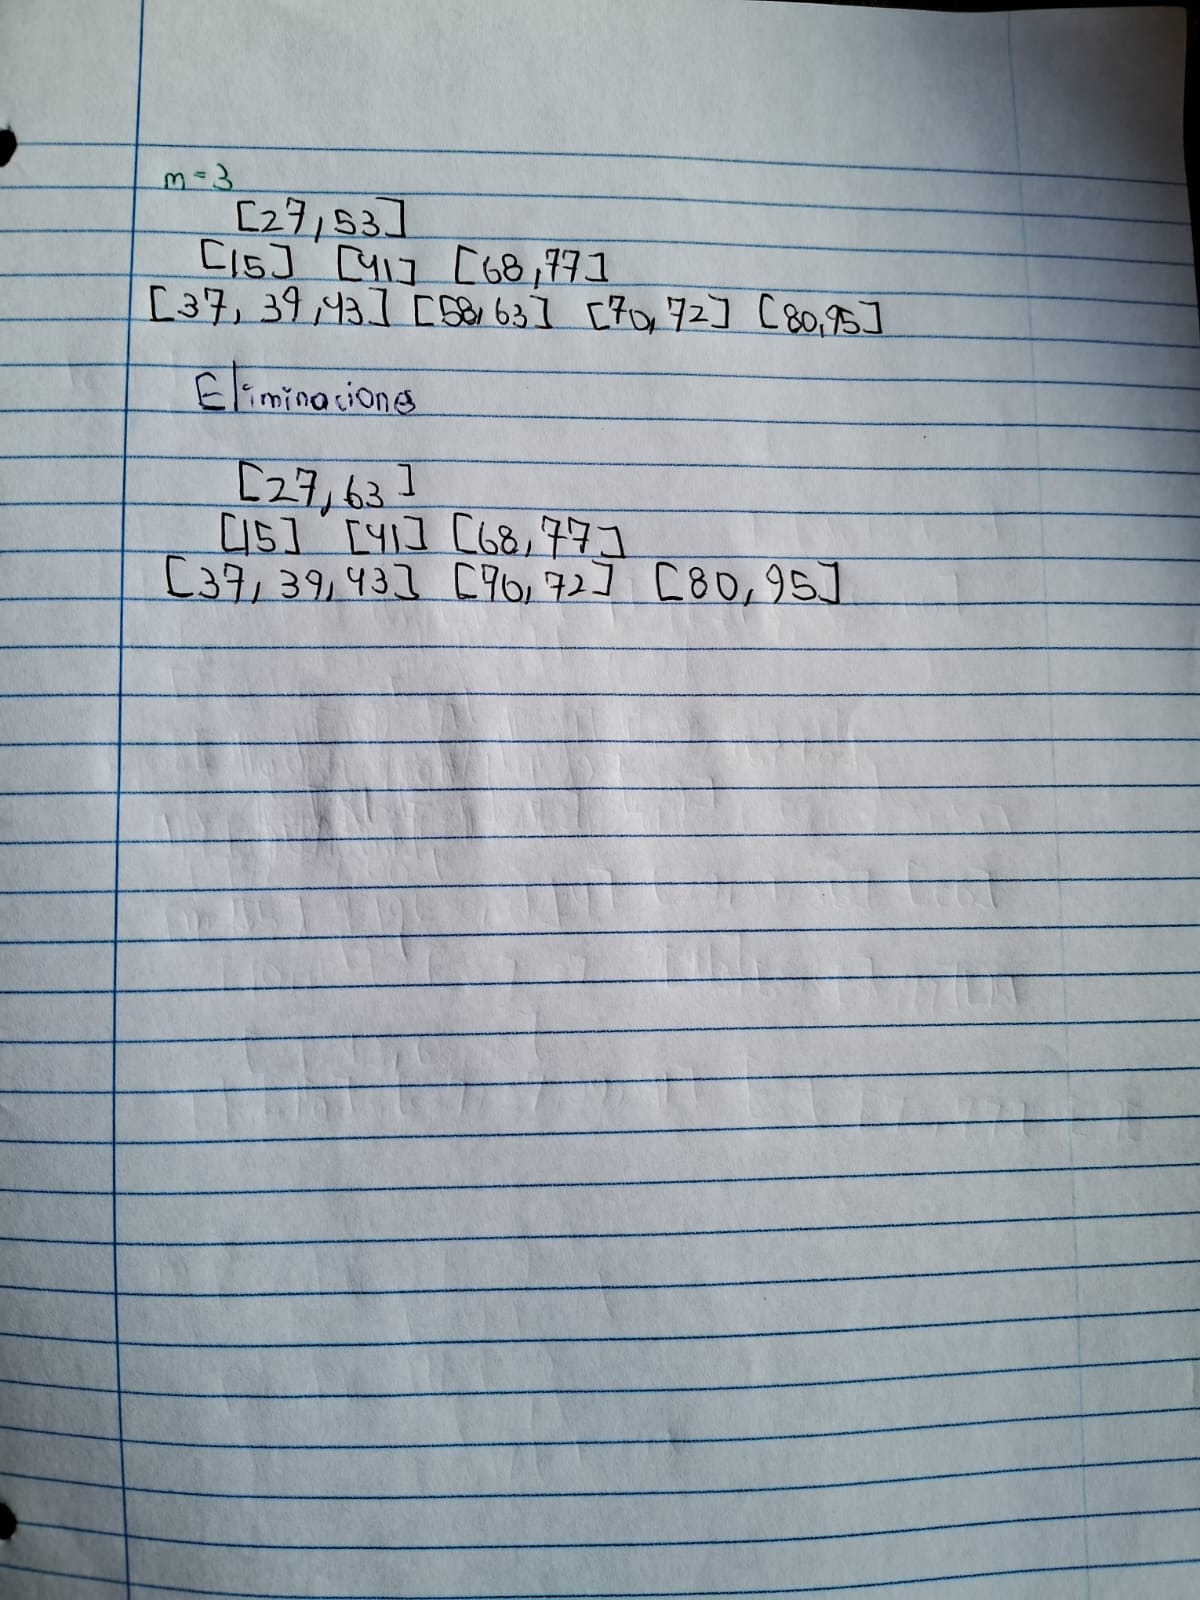 m=3
[27,53]
[15] [41] [68,77]
[37, 39,43] [58,63] [70,72] [80,95]
Eliminaciones
[27,63]
[15] [41] [68,77]
[37, 39, 43] [70,72] [80,95]